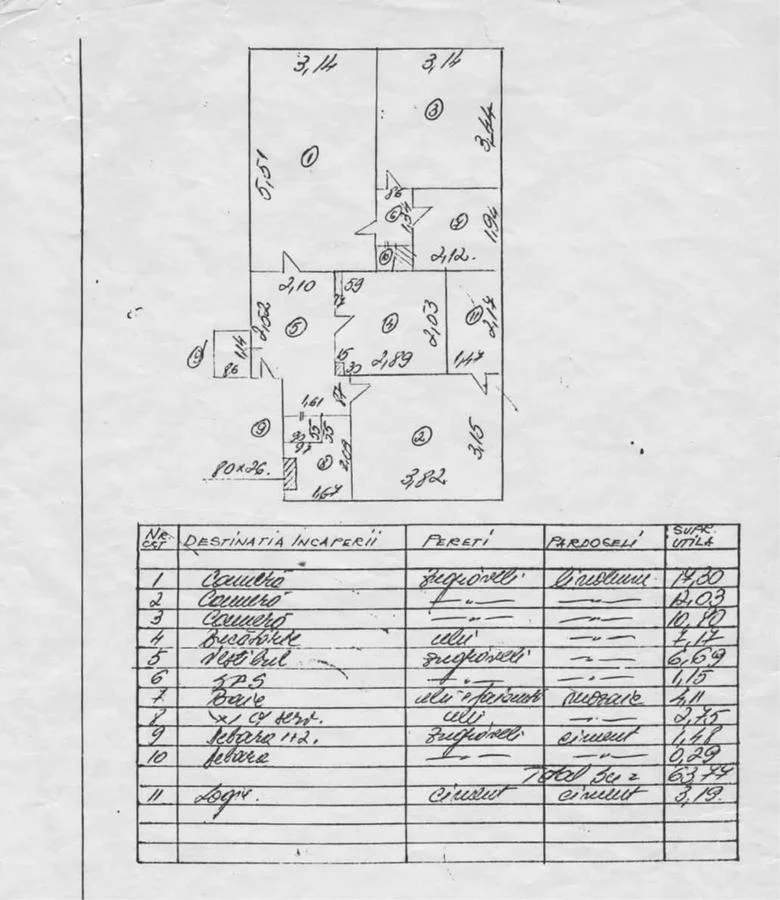 3,14 3,14
③
3,44
①
5,51
86
⑥ 1,34
1,94
⑩
2,12.
2,10
59
⑤
2,52
④
2,03
⑪
2,17
1,14
86
15
30
2,89
1,47
87
1,61
⑨
②
3,15
55 55
97
⑧
2,09
80×26.
3,82
1,67
NR. CRT DESTINATIA INCAPERII PERETI PARDOSELI SUPR. UTILA
1 Cameră zugrăveli linoleum 17,30
2 Cameră —〃— —〃— 12,03
3 Cameră —〃— —〃— 10,80
4 Bucătărie ulei —〃— 7,17
5 Vestibul zugrăveli —〃— 6,69
6 —〃— —〃— 1,15
7 Baie ulei + faianță mozaic 4,11
8 ulei —〃— 2,75
9 Debara 1+2. zugrăveli ciment 1,48
10 Debara —〃— —〃— 0,29
Total Su = 63,77
11 Logie. ciment ciment 3,19